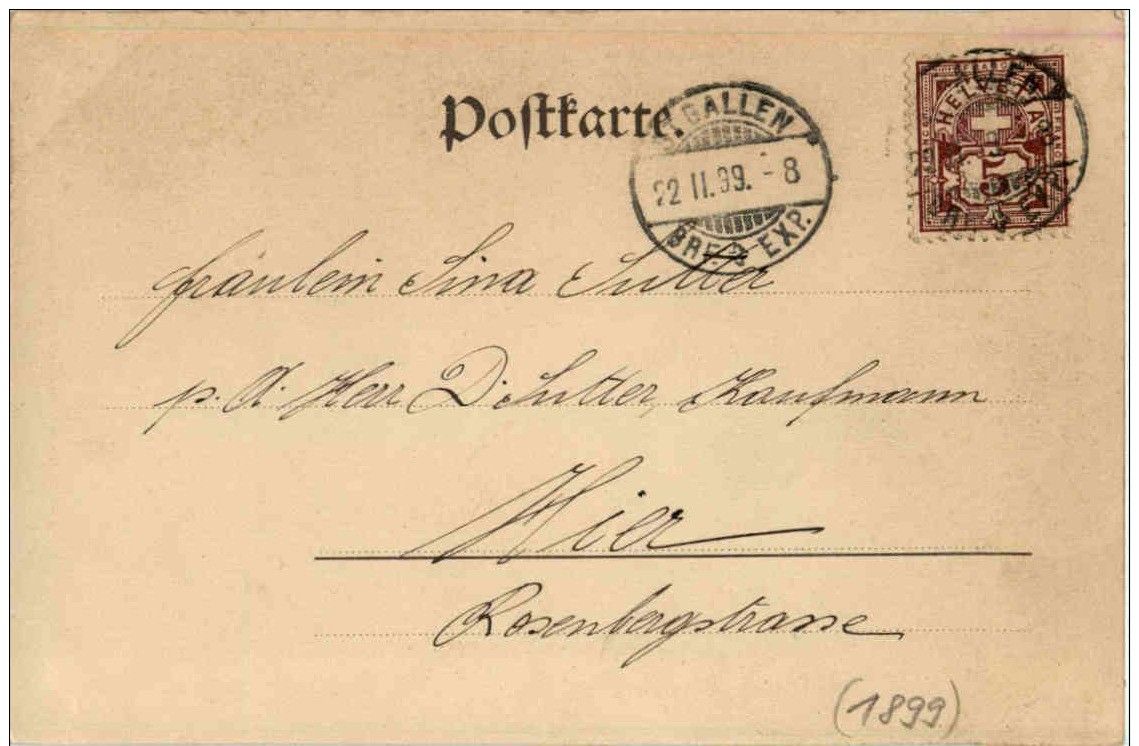 Postkarte.
GALLEN
22 II.99. - 8
BRF. EXP.
ALLEN
HELVETIA
5
Fräulein Sina Sutter
p. A. Herr D. Sutter, Kaufmann
Hier
Rosenbergstrasse
(1899)